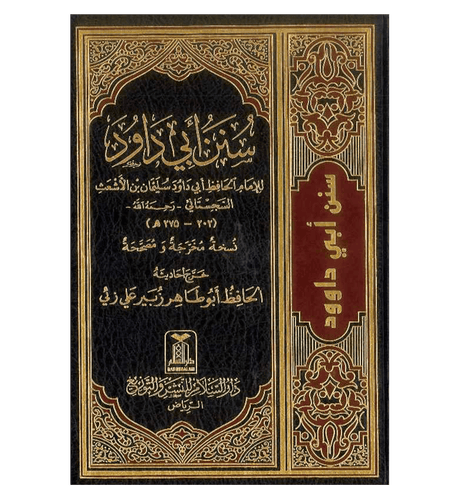 سنن أبي داود
للإمام الحافظ أبي داود سليمان بن الأشعث
السجستاني - رحمه الله -
(٢٠٢ - ٢٧٥ هـ)
نسخة مخرجة و مصححة
خرج أحاديثه
الحافظ أبو طاهر زبير علي زئي
دار السلام
DARUSSALAM
دار السلام للنشر والتوزيع
الرياض
سنن أبي داوود